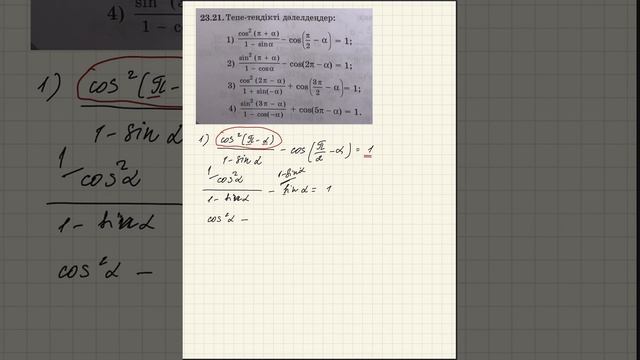 4) sin² (
1 − c
1) cos²(π −
1 − sin α
1 cos²α
1 − sin α
cos²α −
23.21. Тепе-теңдікті дәлелдеңдер:
1) cos² (π + α) / 1 − sin α − cos(π/2 − α) = 1;
2) sin² (π + α) / 1 − cos α − cos(2π − α) = 1;
3) cos² (2π − α) / 1 + sin(−α) + cos(3π/2 − α) = 1;
4) sin² (3π − α) / 1 − cos(−α) + cos(5π − α) = 1.
1) cos²(π − α) / 1 − sin α − cos(π/2 − α) = 1
1 cos²α / 1 − sin α − 1−sin α sin α = 1
cos²α −